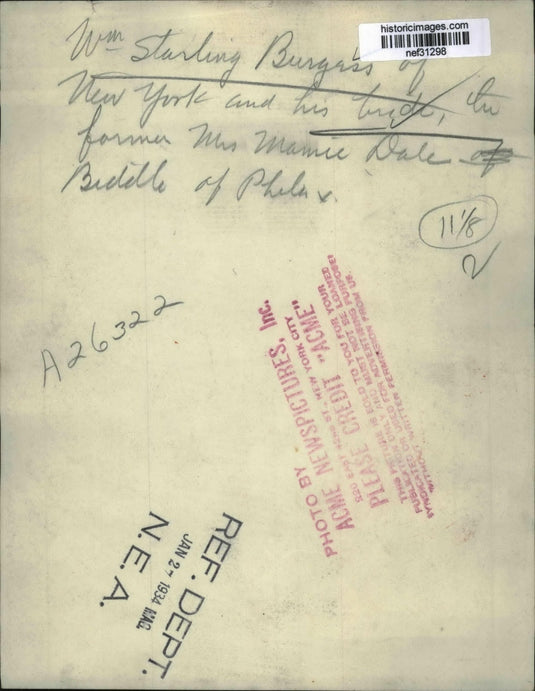 historicimages.com
nef31298
Wm Starling Burgess of
New York and his bride, the
former Mrs Mamie Dale
Biddle of Phila.
11 1/8
2
A26322
PHOTO BY
ACME NEWSPICTURES, Inc.
220 EAST 42ND ST - NEW YORK CITY
PLEASE CREDIT "ACME"
THIS PICTURE IS SOLD TO YOU FOR YOUR
PUBLICATION ONLY AND MUST NOT BE LOANED
SYNDICATED OR USED FOR ADVERTISING PURPOSE
WITHOUT WRITTEN PERMISSION FROM US.
REF. DEPT.
JAN 2 - 1934 MAG.
N. E. A.